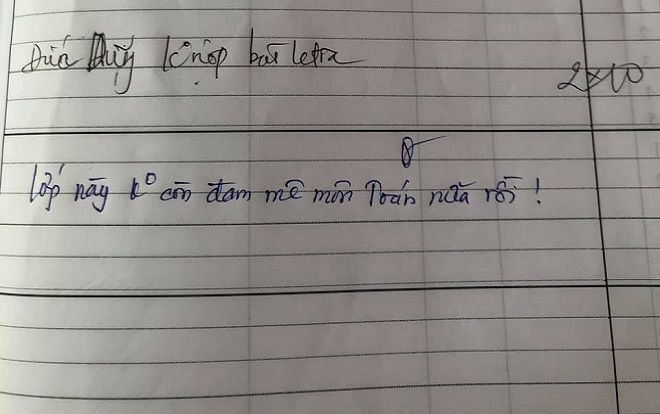 Đức k° nộp bài ktra
2x10
8
Lớp này k° còn đam mê môn Toán nữa rồi !